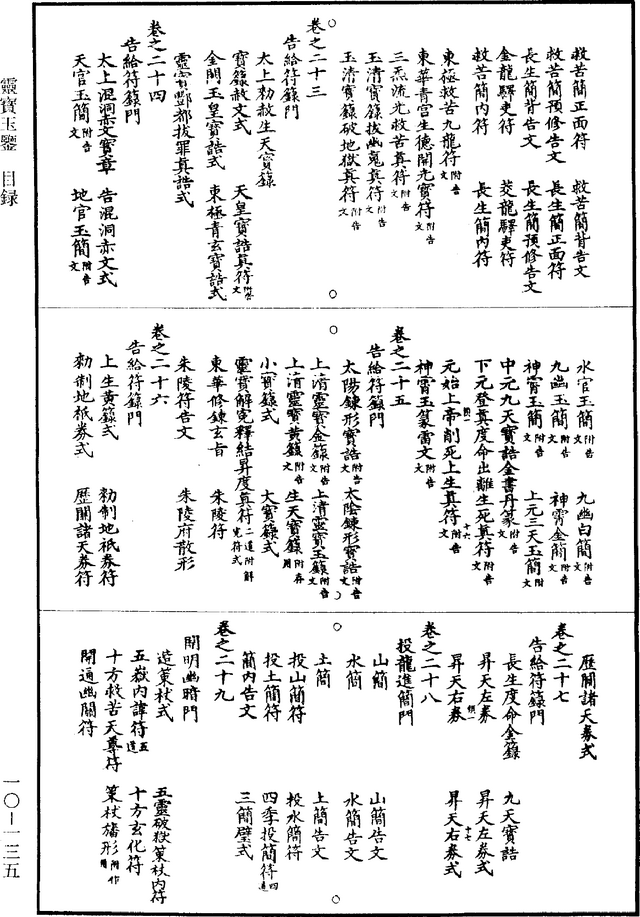 靈寶玉鑒 目録
救苦簡正面符 救苦簡背告文
救苦簡預修告文 長生簡正面符
長生簡背告文 長生簡預修告文
金龍驛吏符 茭龍驛吏符
救苦簡內符 長生簡內符
東極救苦九龍符附告文
東華青宮生德開光寶符附告文
三炁流光救苦真符附告文
玉清寶籙拔幽䰟真符附告文
玉清寶籙破地獄真符附告文
卷之二十三
告給符籙門
太上勑赦生天寶籙
寶籙赦文式 天皇寶誥真符附告文
金闕玉皇寶誥式 東極青玄寶誥式
靈寶酆都拔罪真誥式
卷之二十四
告給符籙門
太上混洞赤文寶章 告混洞赤文式
天官玉簡附告文 地官玉簡附告文
水官玉簡附告文 九幽白簡附告文
九幽玉簡附告文 神霄金簡附告文
神霄玉簡附告文 上元三天玉簡附告文
中元九天寶誥金書丹篆附告文
下元登真度命出離生死真符附告文
元始上帝削死上生真符附告文
神霄玉篆雷文附告文
卷之二十五
告給符籙門
太陽鍊形寶誥附告文 太陰鍊形寶誥附告文
上清靈寶金籙附告文 上清靈寶玉籙附告文
上清靈寶黃籙附告文 生天寶籙附存用
小寶籙式 大寶籙式
靈寶解冤釋結昇度真符二道附解冤符式
東華修鍊玄旨 朱陵符
朱陵符告文 朱陵府散形
卷之二十六
告給符籙門
上生黃籙式 勑制地祇券符
勑制地祇券式 歷關諸天券符
歷關諸天券式
卷之二十七
告給符籙門
長生度命金籙 九天寶誥
昇天左券 昇天左券式
昇天右券 昇天右券式
卷之二十八
投龍進簡門
山簡 山簡告文
水簡 水簡告文
土簡 土簡告文
投山簡符 投水簡符
投土簡符 四季投簡符四道
簡內告文 三簡璧式
卷之二十九
開明幽暗門
造策杖式 五靈破獄策杖內符
五嶽內諱符五道 十方玄化符
十方救苦天尊符 策杖旛形附作用
開通幽關符
一〇-一三五